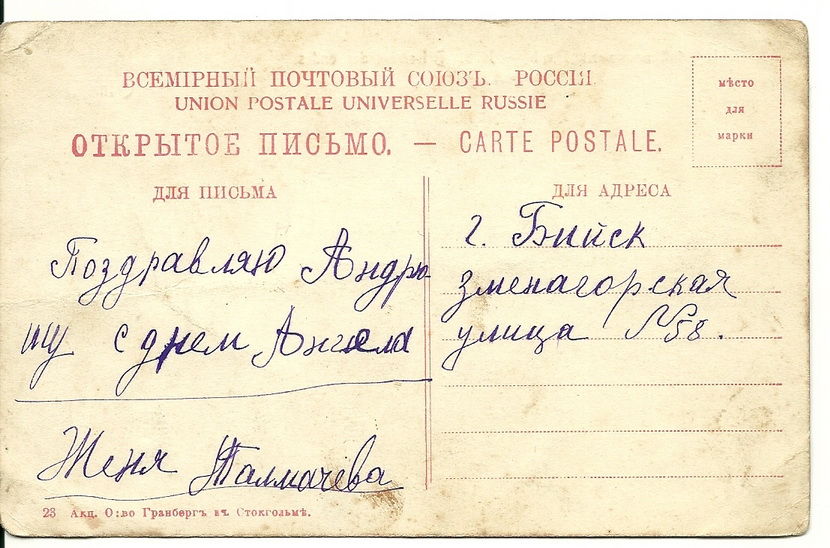 ВСЕМІРНЫЙ ПОЧТОВЫЙ СОЮЗЪ. РОССІЯ
UNION POSTALE UNIVERSELLE RUSSIE
ОТКРЫТОЕ ПИСЬМО. — CARTE POSTALE.
мѣсто
для
марки
ДЛЯ ПИСЬМА
Поздравляю Андрю-
шу с днем Ангела
Женя Талмачева
ДЛЯ АДРЕСА
г. Бийск
зменагорская
улица №58.
23 Акц. О:во Гранбергъ въ Стокгольмѣ.